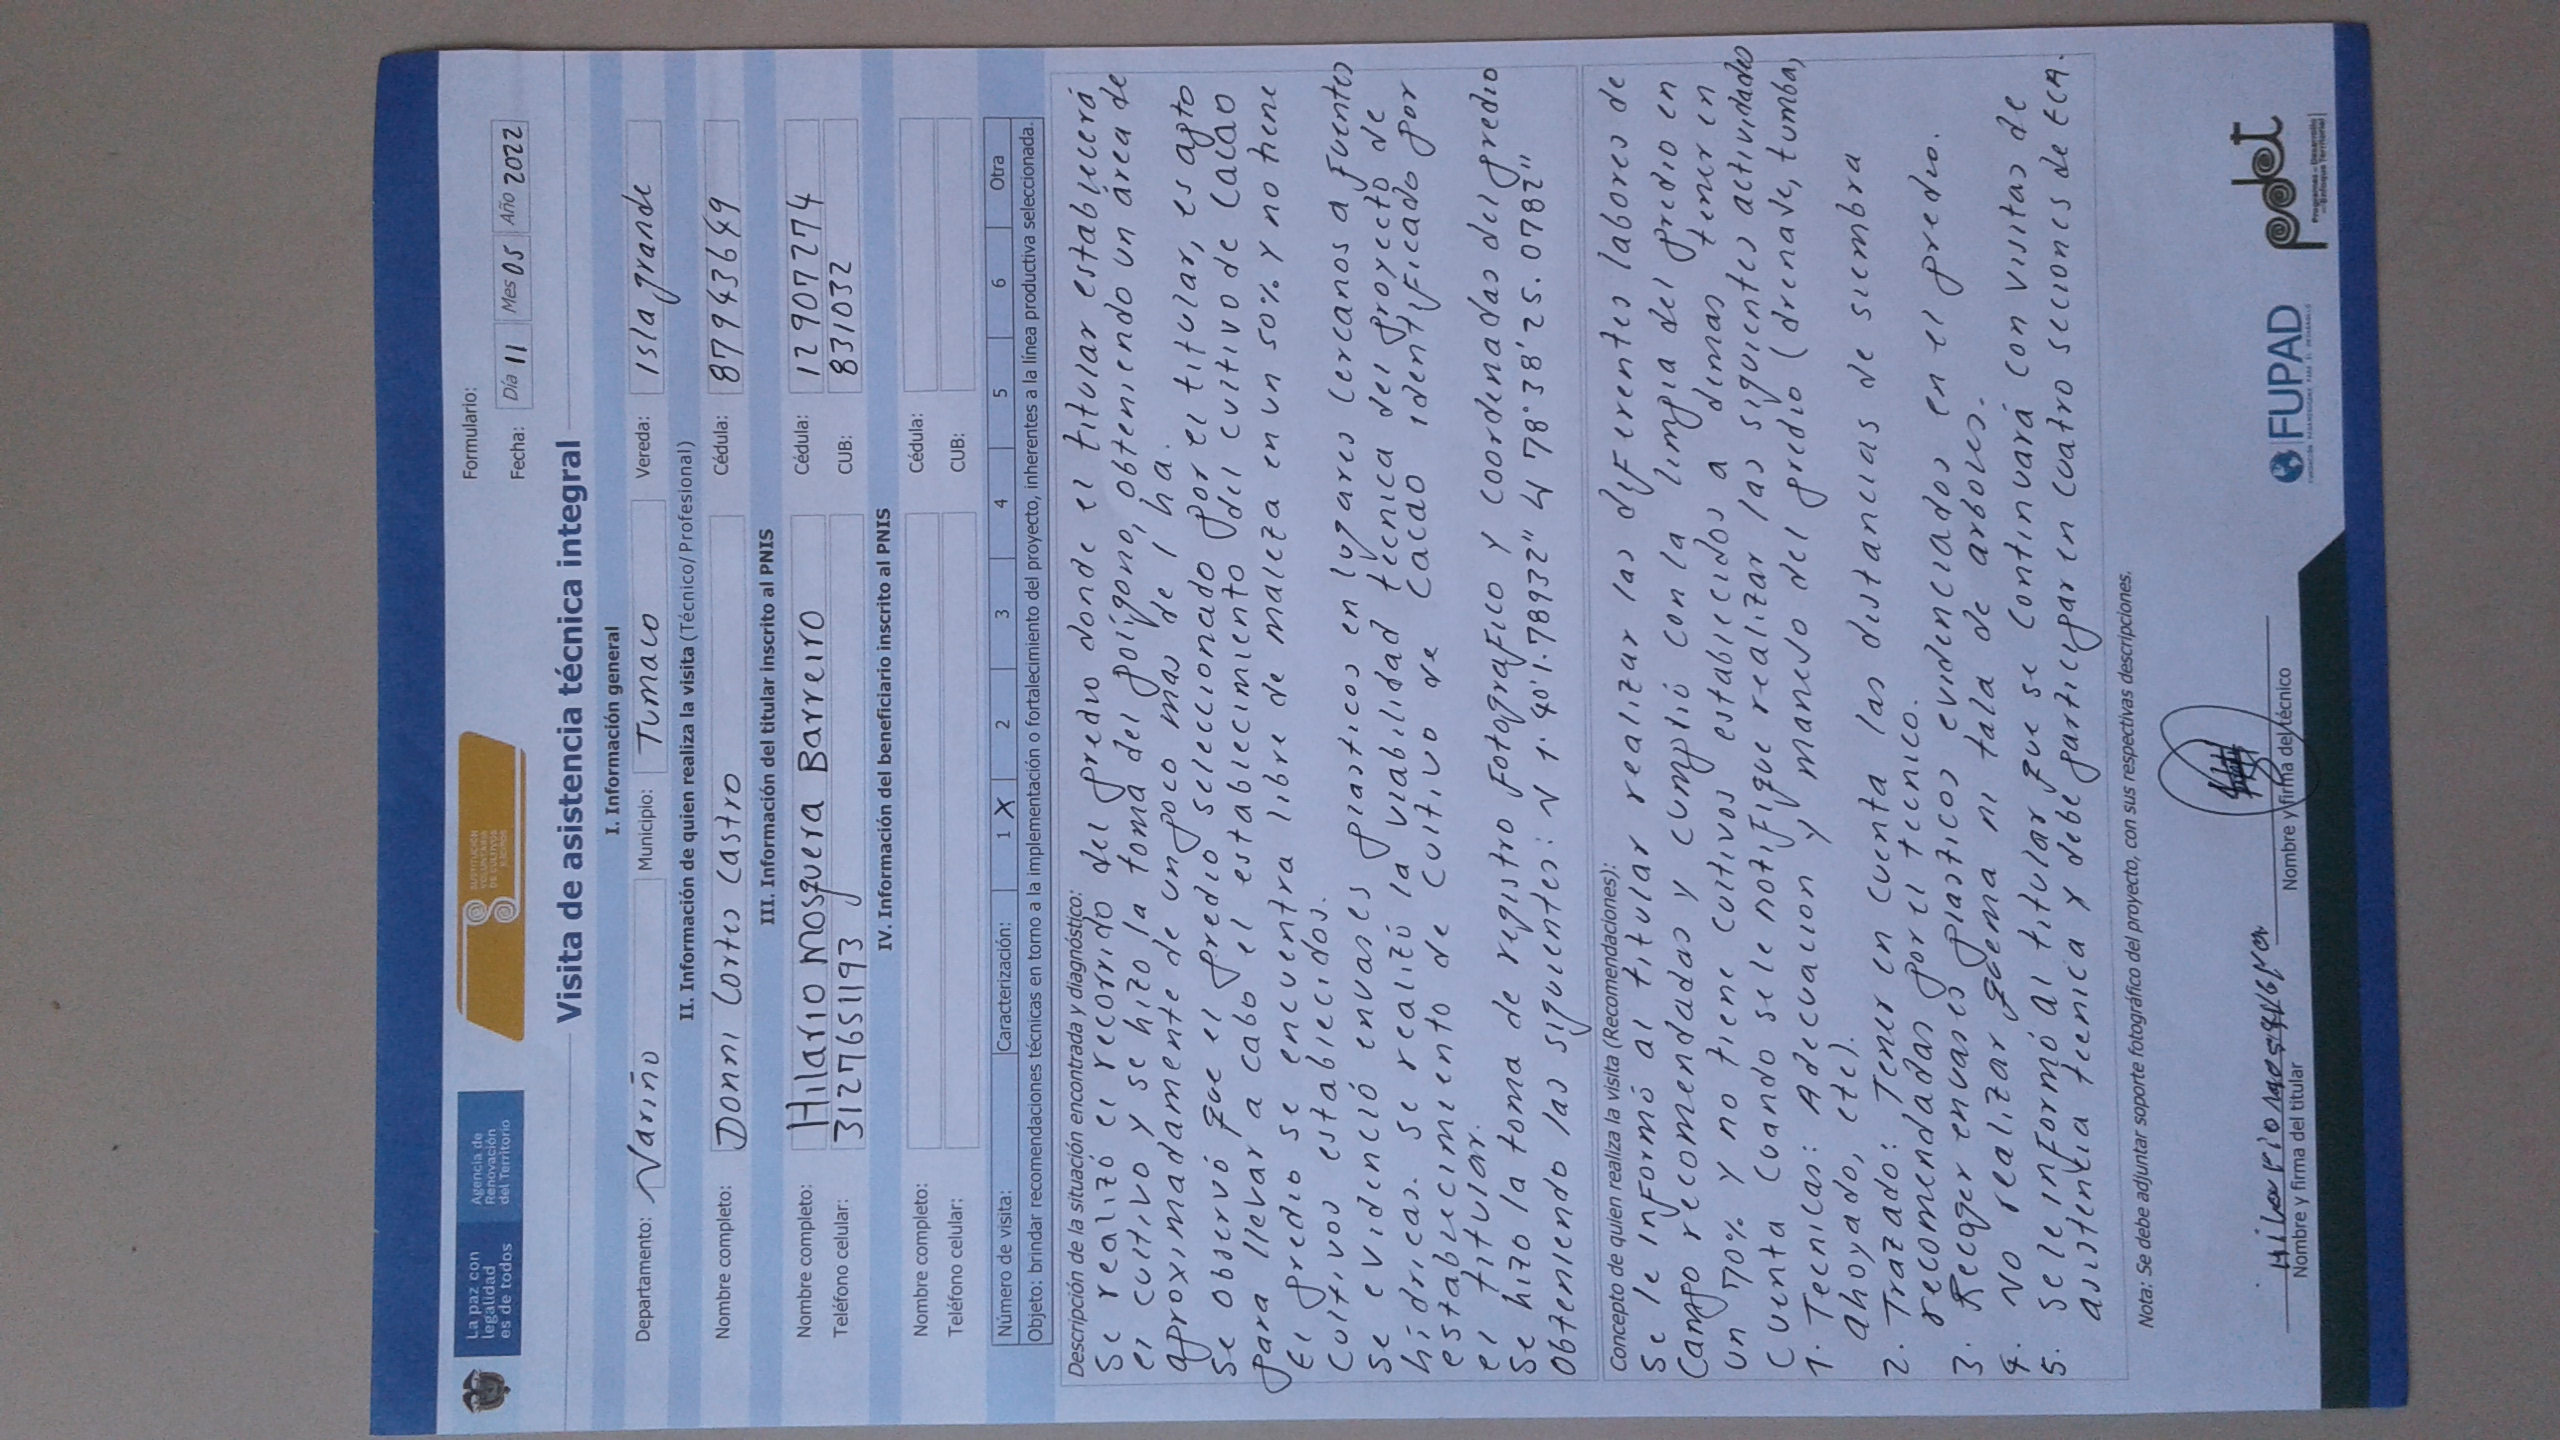 La paz con
legalidad
es de todos
Agencia de
Renovación
del Territorio
SUSTITUCIÓN
VOLUNTARIA
DE CULTIVOS
ILÍCITOS
Formulario:
Fecha: Día 11 Mes 05 Año 2022
Visita de asistencia técnica integral
I. Información general
Departamento: Nariño Municipio: Tumaco Vereda: Isla grande
II. Información de quien realiza la visita (Técnico/Profesional)
Nombre completo: Donni Cortes Castro Cédula: 87943649
III. Información del titular inscrito al PNIS
Nombre completo: Hilario Mosquera Barreiro Cédula: 12907274
Teléfono celular: 3127651193 CUB: 831032
IV. Información del beneficiario inscrito al PNIS
Nombre completo: Cédula:
Teléfono celular: CUB:
Número de visita: Caracterización: 1 X 2 3 4 5 6 Otra
Objeto: brindar recomendaciones técnicas en torno a la implementación o fortalecimiento del proyecto, inherentes a la línea productiva seleccionada.
Descripción de la situación encontrada y diagnóstico:
Se realizó el recorrido del predio donde el titular establecerá
el cultivo y se hizo la toma del polígono, obteniendo un área de
aproximadamente de un poco mas de 1 ha.
Se observó que el predio seleccionado por el titular, es apto
para llevar a cabo el establecimiento del cultivo de cacao
El predio se encuentra libre de maleza en un 50% y no tiene
cultivos establecidos.
Se evidenció envases plasticos en lugares cercanos a fuentes
hídricas. se realizó la viabilidad técnica del proyecto de
establecimiento de cultivo de cacao identificado por
el titular.
Se hizo la toma de registro fotografico y coordenadas del predio
obteniendo las siguientes: N 1°40'1.78932" W 78°38'25.0782"
Concepto de quien realiza la visita (Recomendaciones):
Se le informó al titular realizar las diferentes labores de
campo recomendadas y cumplió con la limpia del predio en
un 70% y no tiene cultivos establecidos a demas tener en
cuenta cuando se le notifique realizar las siguientes actividades
1. Tecnicas: Adecuacion y manejo del predio (drenave, tumba,
ahoyado, etc).
2. Trazado: Tener en cuenta las distancias de siembra
recomendadas por el tecnico.
3. Recoger envases plasticos evidenciados en el predio.
4. No realizar quema ni tala de arboles.
5. Se le informó al titular que se continuará con visitas de
asistencia tecnica y debe participar en cuatro secciones de ECA.
Nota: Se debe adjuntar soporte fotográfico del proyecto, con sus respectivas descripciones.
Hilario
Nombre y firma del titular
Nombre y firma del técnico
FUPAD
pdet
Programas de Desarrollo
con Enfoque Territorial